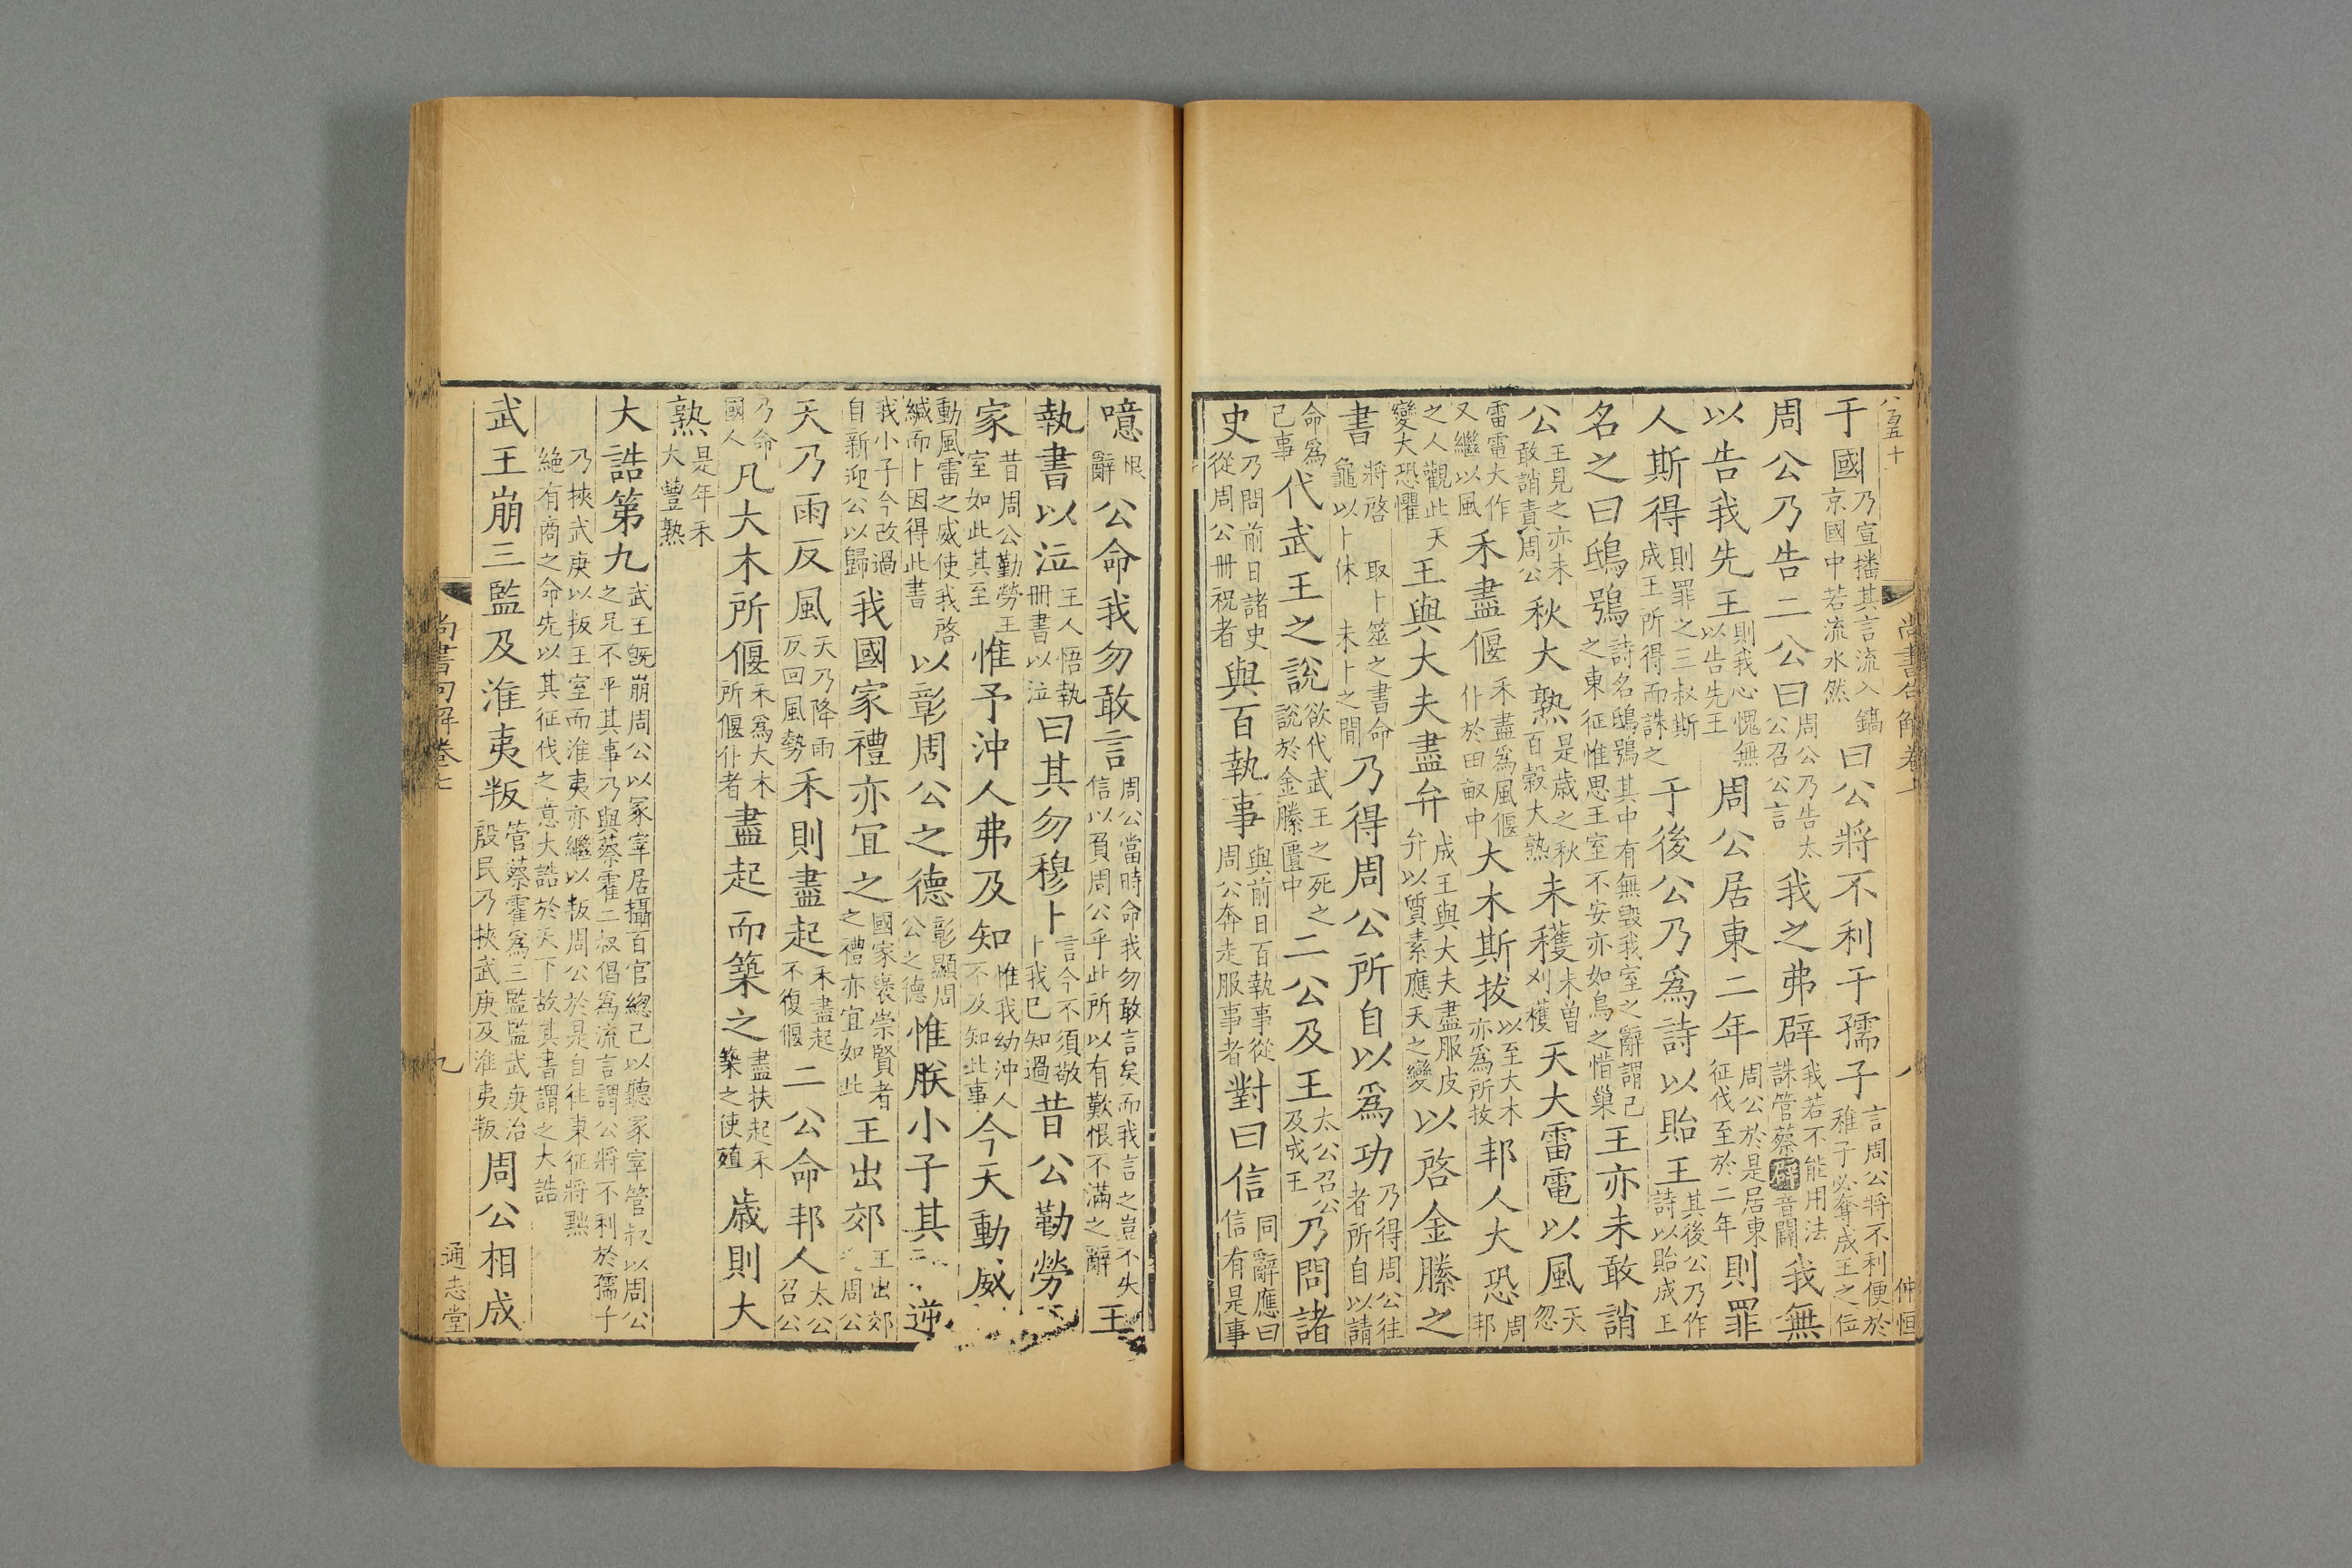 八百五十
尚書句解卷
八
仲恒
于國乃宣播其言流入鎬京國中若流水然曰公將不利于孺子言周公將不利便於稚子必奪成王之位
周公乃告二公曰周公乃告太公召公言我之弗辟我若不能用法誅管蔡辟音闢我無
以告我先王則我心愧無以告先王周公居東二年周公於是居東征伐至於二年則罪
人斯得則罪之三叔斯成王所得而誅之于後公乃爲詩以貽王其後公乃作詩以貽成王
名之曰鴟鴞詩名鴟鴞其中有無毀我室之辭謂己之東征惟思王室不安亦如鳥之惜巢王亦未敢誚
公王見之亦未敢誚責周公秋大熟是歲之秋百穀大熟未穫未曾刈穫天大雷電以風天忽
雷電大作又繼以風禾盡偃禾盡爲風偃仆於田畝中大木斯拔以至大木亦爲所拔邦人大恐周邦
之人觀此天變大恐懼王與大夫盡弁成王與大夫盡服皮弁以質素應天之變以啓金縢之
書將啓龜以卜休取卜筮之書命未卜之間乃得周公所自以爲功乃得周公往者所自以請
命爲己事代武王之說欲代武王之死之說於金縢匱中二公及王太公召公及成王乃問諸
史乃問前日諸史從周公冊祝者與百執事與前日百執事從周公奔走服事者對曰信同辭應曰信有是事
噫恨辭公命我勿敢言周公當時命我勿敢言矣而我言之豈不失信以負周公乎此所以有歎恨不滿之辭王
執書以泣王人悟執冊書以泣曰其勿穆卜言今不須敬卜我已知過昔公勤勞
家昔周公勤勞王室如此其至惟予沖人弗及知惟我幼沖人不及知此事今天動威
動風雷之威使我啓緘而卜因得此書以彰周公之德彰顯周公之德惟朕小子其逆
我小子今改過自新迎公以歸我國家禮亦宜之國家褒崇賢者之禮亦宜如此王出郊王出郊周公
天乃雨反風天乃降雨反回風勢禾則盡起禾盡起不復偃二公命邦人太公召公
乃命國人凡大木所偃禾爲大木所偃仆者盡起而築之盡扶起禾築之使殖歲則大
熟是年禾大豐熟
大誥第九武王旣崩周公以冢宰居攝百官總己以聽冢宰管叔以周公之兄不平其事乃與蔡霍二叔倡爲流言謂公將不利於孺子
乃挾武庚以叛王室而淮夷亦繼以叛周公於是自往東征將黜絕有商之命先以其征伐之意大誥於天下故其書謂之大誥
武王崩三監及淮夷叛管蔡霍爲三監監武庚治殷民乃挾武庚及淮夷叛周公相成
尚書句解卷七
九
通志堂